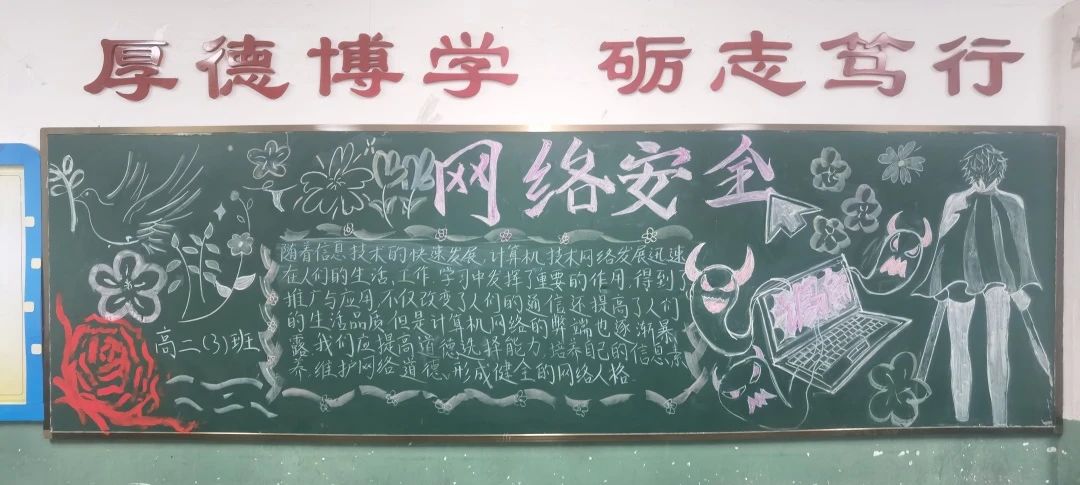 厚德博学 砺志笃行
网络安全
随着信息技术的快速发展,计算机技术网络发展迅速
在人们的生活,工作,学习中发挥了重要的作用,得到了
推广与应用,不仅改变了人们的通信还提高了人们
的生活品质,但是计算机网络的弊端也逐渐暴
露,我们应提高道德选择能力,培养自己的信息素
养,维护网络道德,形成健全的网络人格
高二(3)班